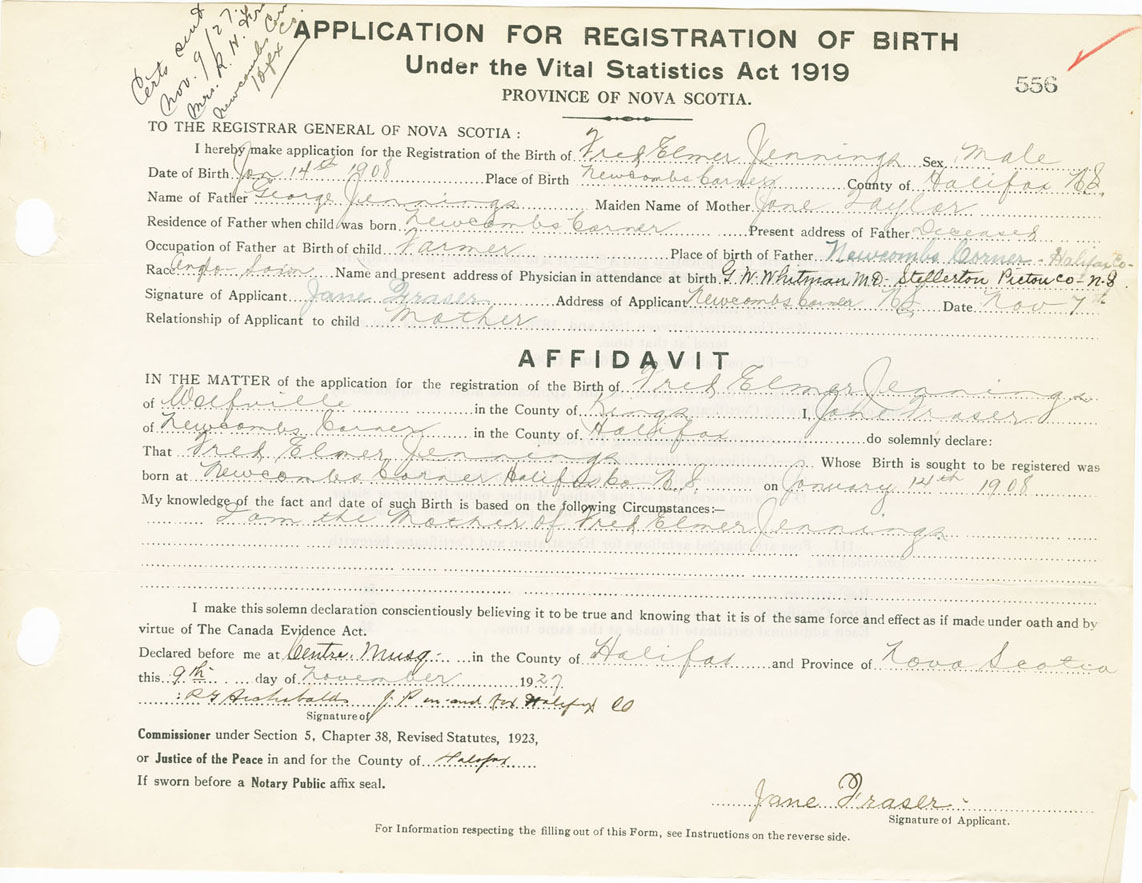 Certs sent
Nov. 9/27.
Mrs. R. H.
Newcombs Cor
Hfx Co.
APPLICATION FOR REGISTRATION OF BIRTH
Under the Vital Statistics Act 1919
556
PROVINCE OF NOVA SCOTIA.
TO THE REGISTRAR GENERAL OF NOVA SCOTIA :
I hereby make application for the Registration of the Birth of Fred Elmer Jennings Sex Male
Date of Birth Jan 14th 1908 Place of Birth Newcombs Corner County of Halifax N.S.
Name of Father George Jennings Maiden Name of Mother Jane Taylor
Residence of Father when child was born Newcombs Corner Present address of Father Deceased
Occupation of Father at Birth of child Farmer Place of birth of Father Newcombs Corner - Halifax Co-
Race Anglo-Saxon Name and present address of Physician in attendance at birth G. W. Whitman M.D. Stellerton Pictou Co- N-S
Signature of Applicant Jane Fraser Address of Applicant Newcombs Corner N.S. Date Nov 7th
Relationship of Applicant to child Mother
AFFIDAVIT
IN THE MATTER of the application for the registration of the Birth of Fred Elmer Jennings
of Wolfville in the County of Kings I, Jane Fraser
of Newcombs Corner in the County of Halifax do solemnly declare:
That Fred Elmer Jennings Whose Birth is sought to be registered was
born at Newcombs Corner Halifax Co N.S. on January 14th 1908
My knowledge of the fact and date of such Birth is based on the following Circumstances:—
I am the Mother of Fred Elmer Jennings
I make this solemn declaration conscientiously believing it to be true and knowing that it is of the same force and effect as if made under oath and by
virtue of The Canada Evidence Act.
Declared before me at Centre Musq. in the County of Halifax and Province of Nova Scotia
this 9th day of November 1927
R G Archibald J. P in and for Halifax Co
Signature of
Commissioner under Section 5, Chapter 38, Revised Statutes, 1923,
or Justice of the Peace in and for the County of Halifax
If sworn before a Notary Public affix seal.
Jane Fraser
Signature of Applicant.
For Information respecting the filling out of this Form, see Instructions on the reverse side.